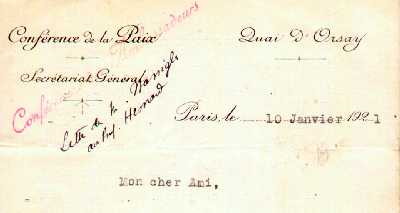 Conférence de la Paix
Quai d'Orsay
Secrétariat Général
Conférence des Ambassadeurs
Lettre de M.
au Prof. Hesnard
Paris, le 10 Janvier 1921
Mon cher Ami,